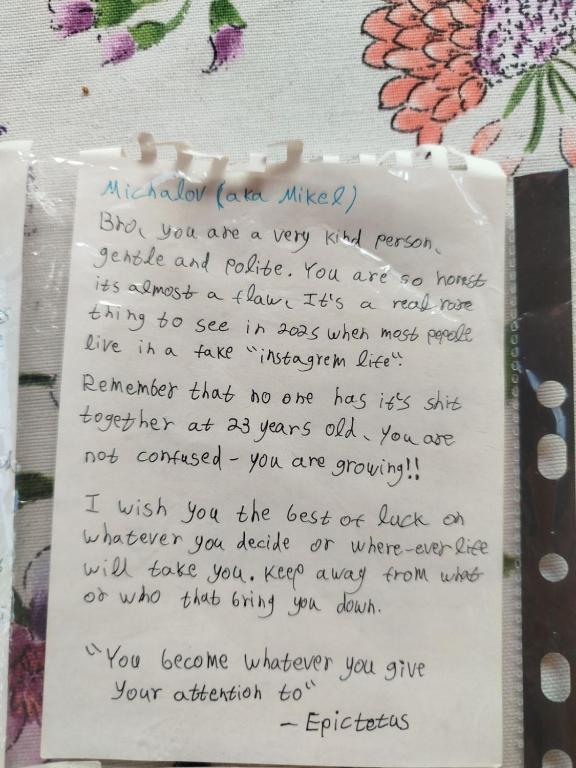 Michalov (aka Mikel)
Bro, you are a very kind person,
gentle and polite. You are so honest
its almost a flaw, It's a real rare
thing to see in 2025 when most people
live in a fake "instagrem life".
Remember that no one has it's shit
together at 23 years old, you are
not confused - you are growing!!
I wish you the best of luck on
whatever you decide or where-ever life
will take you. Keep away from what
or who that bring you down.
"You become whatever you give
your attention to"
- Epictetus